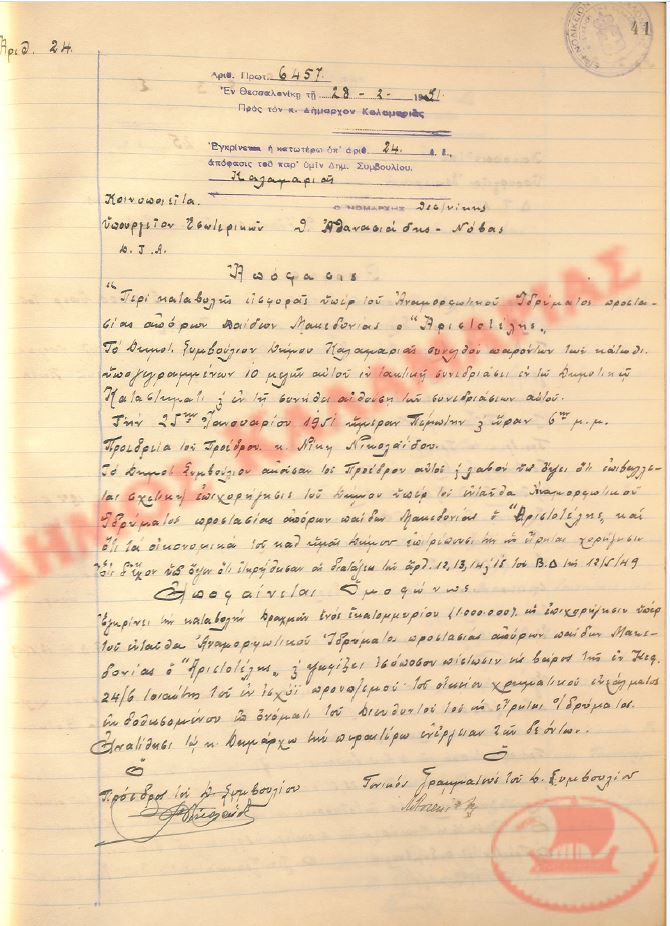 Ἀριθ. 24.
41
Ἀριθ. Πρωτ. 6457
Ἐν Θεσσαλονίκῃ τῇ 28 - 2 - 1951
Πρὸς τὸν κ. Δήμαρχον Καλαμαριᾶς
Ἐγκρίνεται ἡ κατωτέρω ὑπ' ἀριθ. 24 ἐ. ἔ.,
ἀπόφασις τοῦ παρ' ὑμῖν Δημ. Συμβουλίου.
Καλαμαριᾶς
Κοινοποιεῖται
Ο ΝΟΜΑΡΧΗΣ Θεσ/νίκης
Ὑπουργεῖον Ἐσωτερικῶν Θ. Ἀθανασιάδης - Νόβας
Δ.Τ.Α.
Ἀπόφασις
"Περὶ καταβολῆς εἰσφορᾶς ὑπὲρ τοῦ Ἀναμορφωτικοῦ Ἱδρύματος προστα-
σίας ἀπόρων παίδων Μακεδονίας ὁ "Ἀριστοτέλης„
Τὸ Δημοτ. Συμβούλιον Δήμου Καλαμαριᾶς συνελθὸν παρόντων τῶν κάτωθι
ὑπογεγραμμένων 10 μελῶν αὐτοῦ ἐν τακτικῇ συνεδριάσει ἐν τῷ Δημοτικῷ
Καταστήματι & ἐν τῇ συνήθει αἰθούσῃ τῶν συνεδριάσεων αὐτοῦ.
Τὴν 25ην Ἰανουαρίου 1951 ἡμέραν Πέμπτην & ὥραν 6ην μ.μ.
Προεδρεία τοῦ Προέδρου κ. Νίκη Νικολαΐδου.
Τὸ Δημοτ. Συμβούλιον ἀκοῦσαν τοῦ Προέδρου αὐτοῦ & λαβὸν ὑπ' ὄψει ὅτι ἐπιβάλλε-
ται σχετικὴ ἐπιχορήγησις τοῦ Δήμου ὑπὲρ τοῦ ἐνταῦθα Ἀναμορφωτικοῦ
Ἱδρύματος προστασίας ἀπόρων παίδων Μακεδονίας ὁ "Ἀριστοτέλης„ καὶ
ὅτι τὰ οἰκονομικὰ τοῦ καθ' ἡμᾶς Δήμου ἐπιτρέπουσι τὴν ὡς εἴρηται χορήγησιν
Ἔτι δὲ ὑπ' ὄψει ὅτι ἐτηρήθησαν αἱ διατάξεις τῶν ἄρθ. 12, 13, 14 & 15 τοῦ Β.Δ τῆς 12/5/49
Ἀποφαίνεται Ὁμοφώνως
Ἐγκρίνει τὴν καταβολὴν δραχμῶν ἑνὸς ἑκατομμυρίου (1.000.000) ὡς ἐπιχορήγησιν ὑπὲρ
τοῦ ἐνταῦθα Ἀναμορφωτικοῦ Ἱδρύματος προστασίας ἀπόρων παίδων Μακε-
δονίας ὁ "Ἀριστοτέλης„ & ψηφίζει ἰσόποσον πίστωσιν εἰς βάρος τῆς ἐν Κεφ.
24/6 τοιαύτης τοῦ ἐν ἰσχύϊ προϋπ/σμοῦ τοῦ οἰκείου χρηματικοῦ ἐντάλματος
ἐκδοθησομένου ἐπ' ὀνόματι τοῦ Διευθυντοῦ τοῦ ὡς εἴρηται Ἱδρύματος.
Ἀνατίθησι τῷ κ. Δημάρχῳ τὴν περαιτέρω ἐνέργειαν τῶν δεόντων.
Ὁ Ὁ
Πρόεδρος τοῦ Δ. Συμβουλίου Γενικὸς Γραμματεὺς τοῦ Δ. Συμβουλίου
ΔΗΜΟΣ ΚΑΛΑΜΑΡΙΑΣ